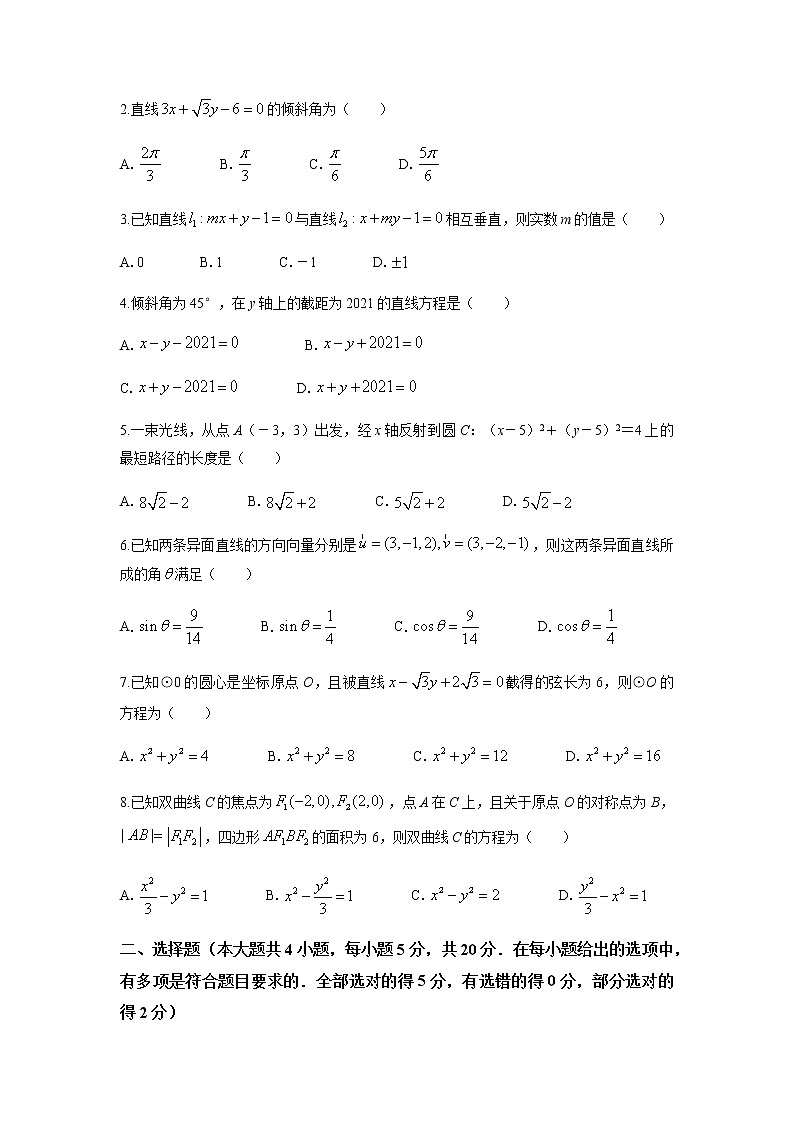 2.直线3x+√3y−6=0的倾斜角为(  )
A. 2π/3  B. π/3  C. π/6  D. 5π/6
3.已知直线l₁:mx+y−1=0与直线l₂:x+my−1=0相互垂直，则实数m的值是(  )
A.0  B.1  C.－1  D.±1
4.倾斜角为45°，在y轴上的截距为2021的直线方程是(  )
A. x−y−2021=0  B. x−y+2021=0
C. x+y−2021=0  D. x+y+2021=0
5.一束光线，从点A(－3，3)出发，经x轴反射到圆C:(x－5)²＋(y－5)²＝4上的
最短路径的长度是(  )
A. 8√2−2  B. 8√2+2  C. 5√2+2  D. 5√2−2
6.已知两条异面直线的方向向量分别是u=(3,−1,2),v=(3,−2,−1)，则这两条异面直线所
成的角θ满足(  )
A. sinθ=9/14  B. sinθ=1/4  C. cosθ=9/14  D. cosθ=1/4
7.已知⊙0的圆心是坐标原点O，且被直线x−√3y+2√3=0截得的弦长为6，则⊙O的
方程为(  )
A. x²+y²=4  B. x²+y²=8  C. x²+y²=12  D. x²+y²=16
8.已知双曲线C的焦点为F₁(−2,0),F₂(2,0)，点A在C上，且关于原点O的对称点为B，
|AB|=|F₁F₂|，四边形AF₁BF₂的面积为6，则双曲线C的方程为(  )
A. x²/3−y²=1  B. x²−y²/3=1  C. x²−y²=2  D. y²/3−x²=1
二、选择题(本大题共4小题，每小题5分，共20分．在每小题给出的选项中，
有多项是符合题目要求的．全部选对的得5分，有选错的得0分，部分选对的
得2分)